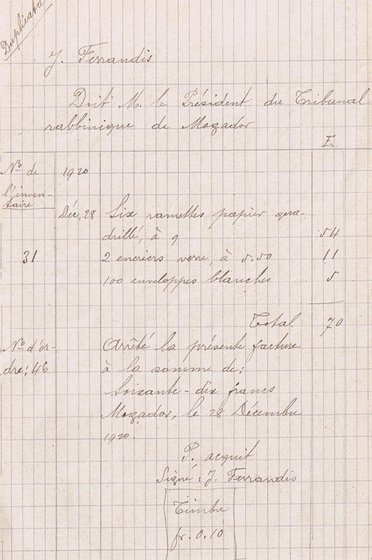 Duplicata
J. Ferrandis
Doit M. le Président du Tribunal
rabbinique de Mogador
Fr.
No de
l'inven-
taire
1920
Déc. 28 Six ramettes papier qua-
drillé, à 9 54
31 2 encriers verre, à 5.50 11
100 enveloppes blanches 5
Total 70
No d'or-
dre: 46
Arrêté la présente facture
à la somme de:
Soixante-dix francs
Mogador, le 28 Décembre
1920.
P. acquit
Signé: J. Ferrandis
Timbre
fr. 0.10